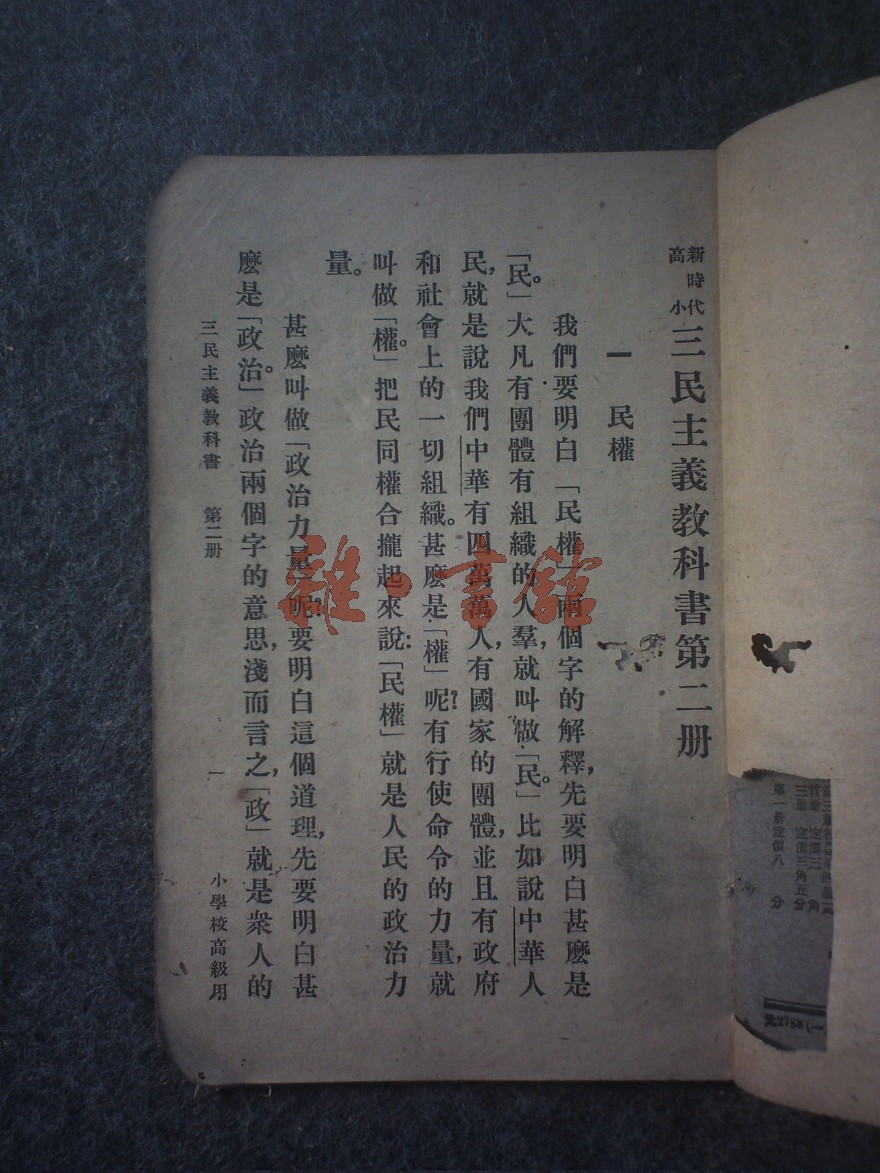 新時代
高小
三民主義教科書第二册
一　民權
我們要明白「民權」兩個字的解釋，先要明白甚麽是
「民。」大凡有團體有組織的人羣，就叫做「民。」比如說中華人
民，就是說我們中華有四萬萬人，有國家的團體，並且有政府
和社會上的一切組織。甚麽是「權」呢？有行使命令的力量，就
叫做「權。」把民同權合攏起來說：「民權」就是人民的政治力
量。
甚麽叫做「政治力量」呢？要明白這個道理，先要明白甚
麽是「政治。」政治兩個字的意思，淺而言之，「政」就是衆人的
三民主義教科書　第二册　一　小學校高級用
雜·書館
定價三角
三册　定價三角五分
第一册定價八　分
2788(一